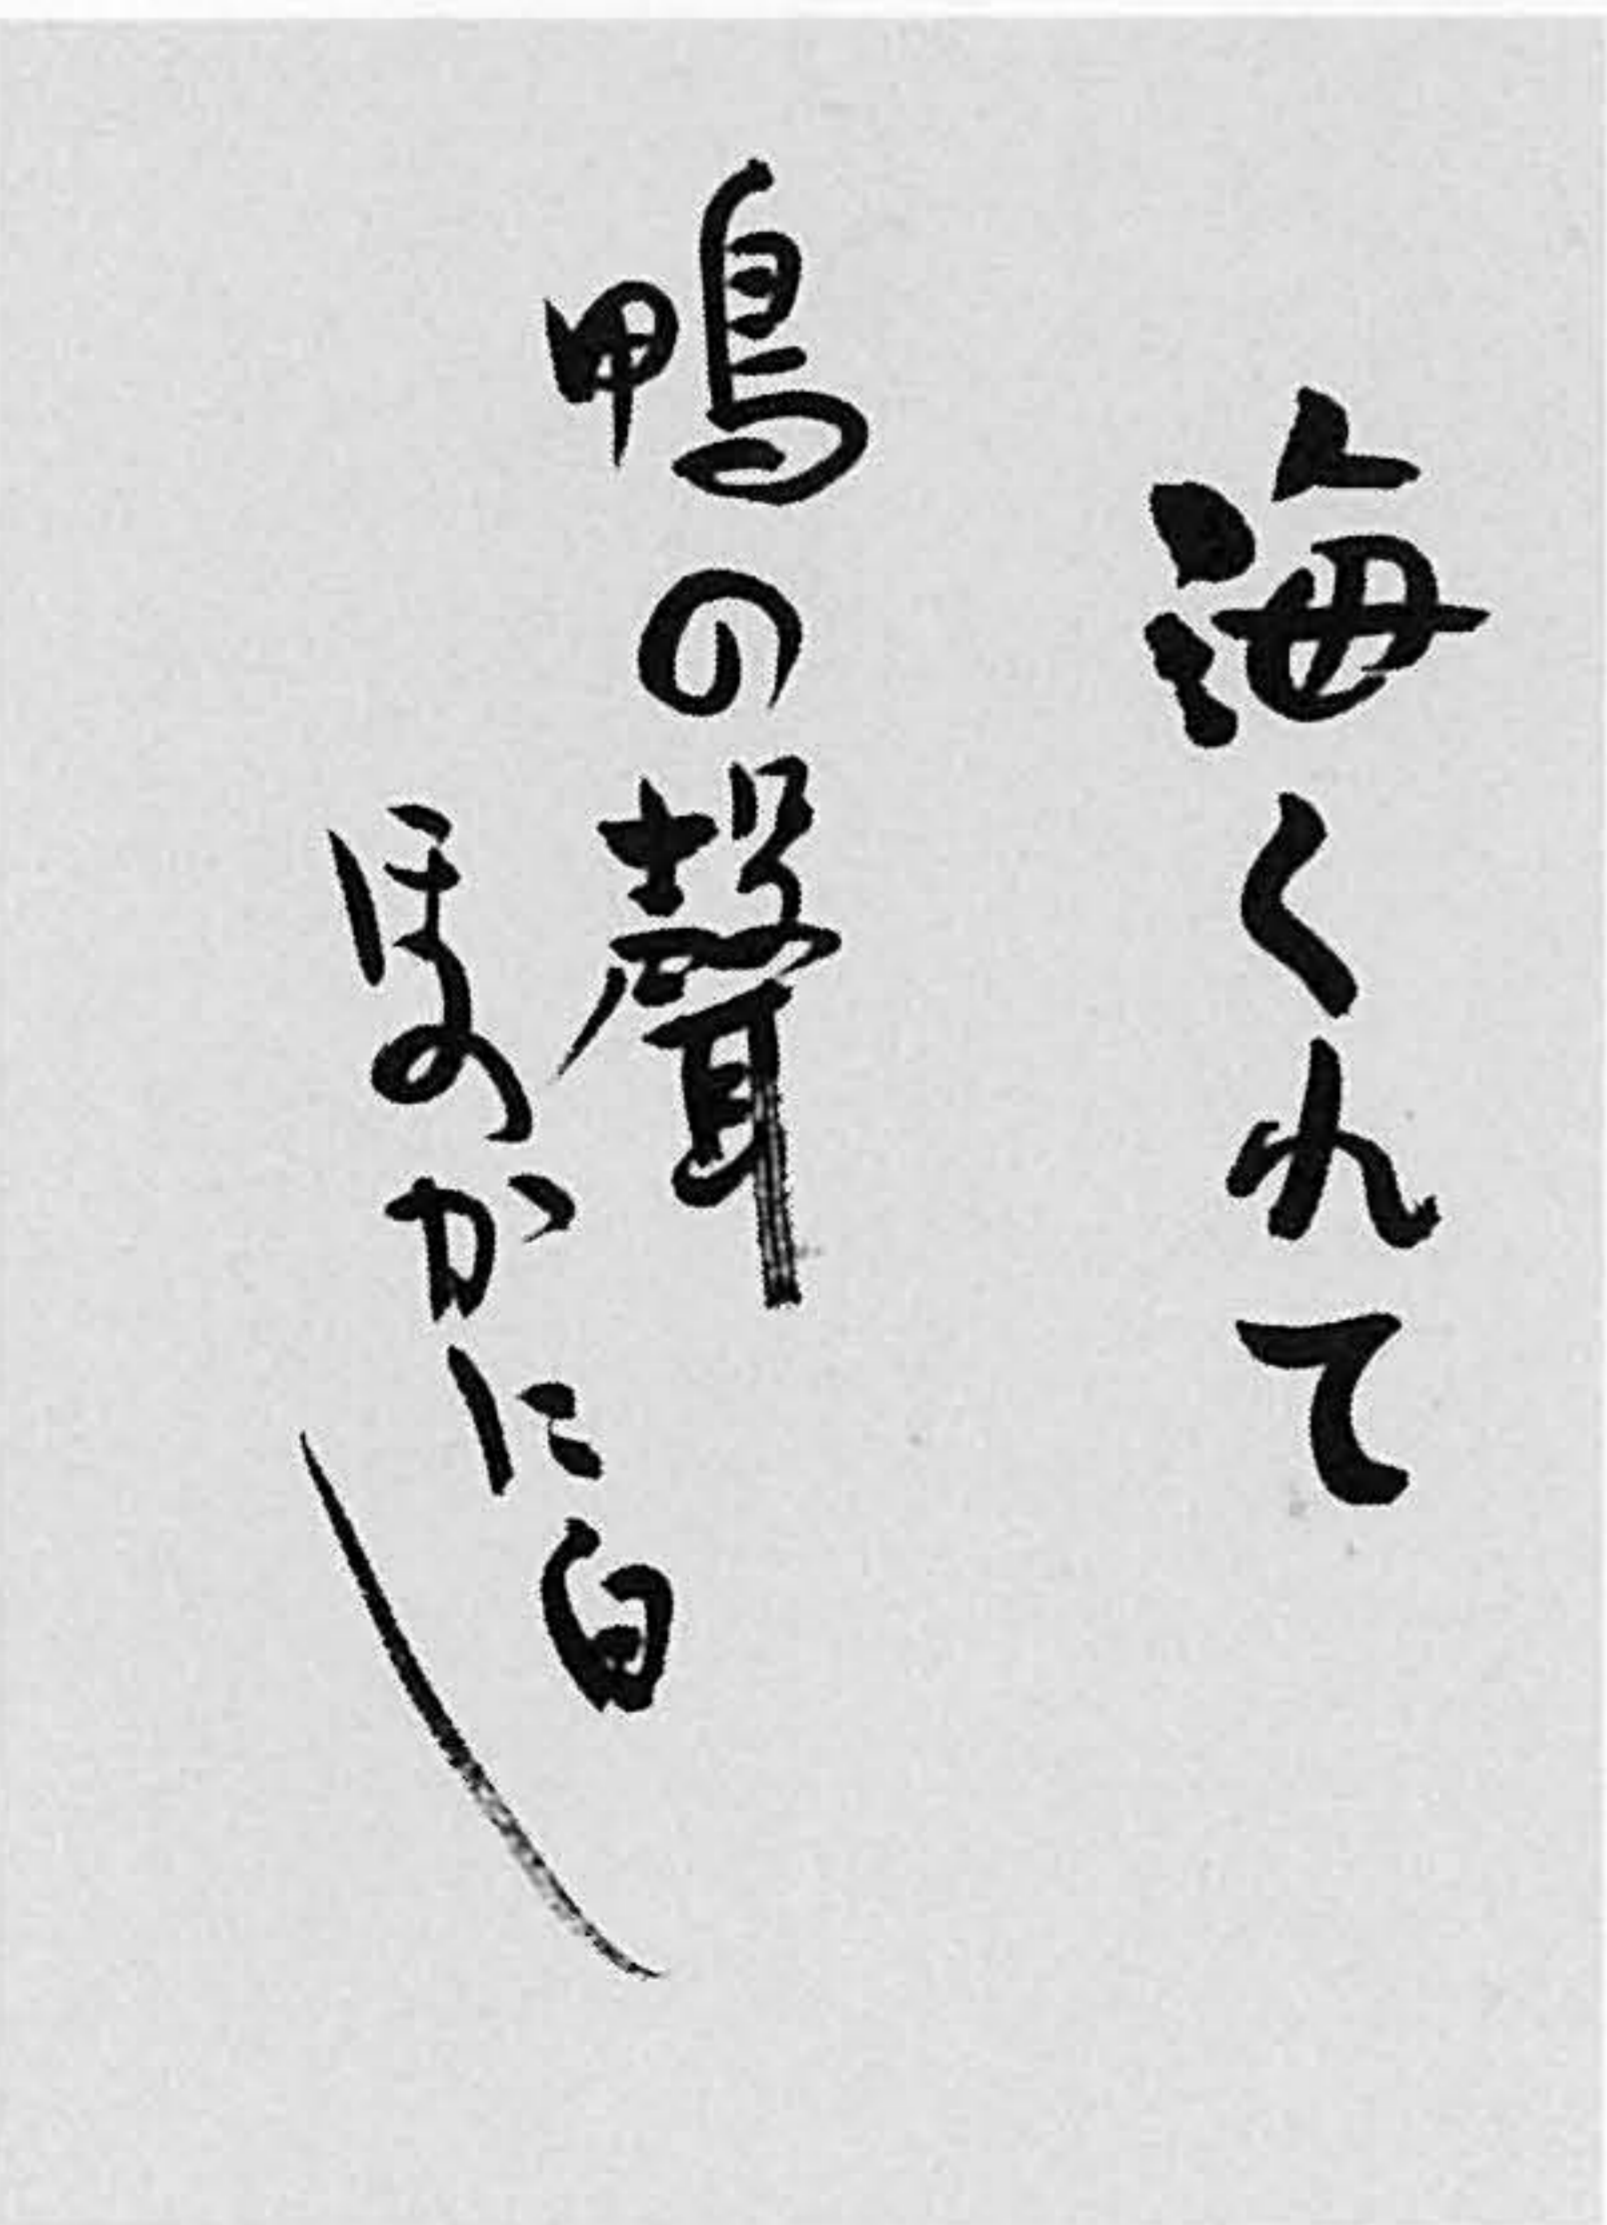 海くれて
鴨の聲
ほのかに白し